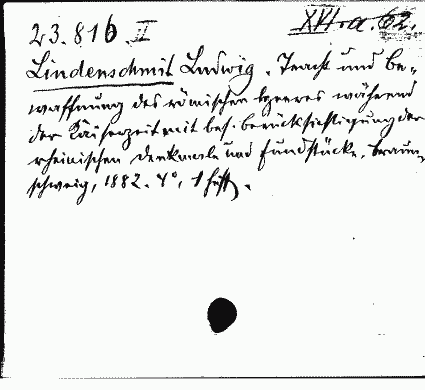 23.816.II
XVI. a. 62.
Lindenschmit Ludwig. Tracht und Be-
waffnung des römischen Heeres während
der Kaiserzeit mit bes. Berücksichtigung der
rheinischen Denkmale und Fundstücke, Braun-
schweig, 1882. 4°, 1 Heft.